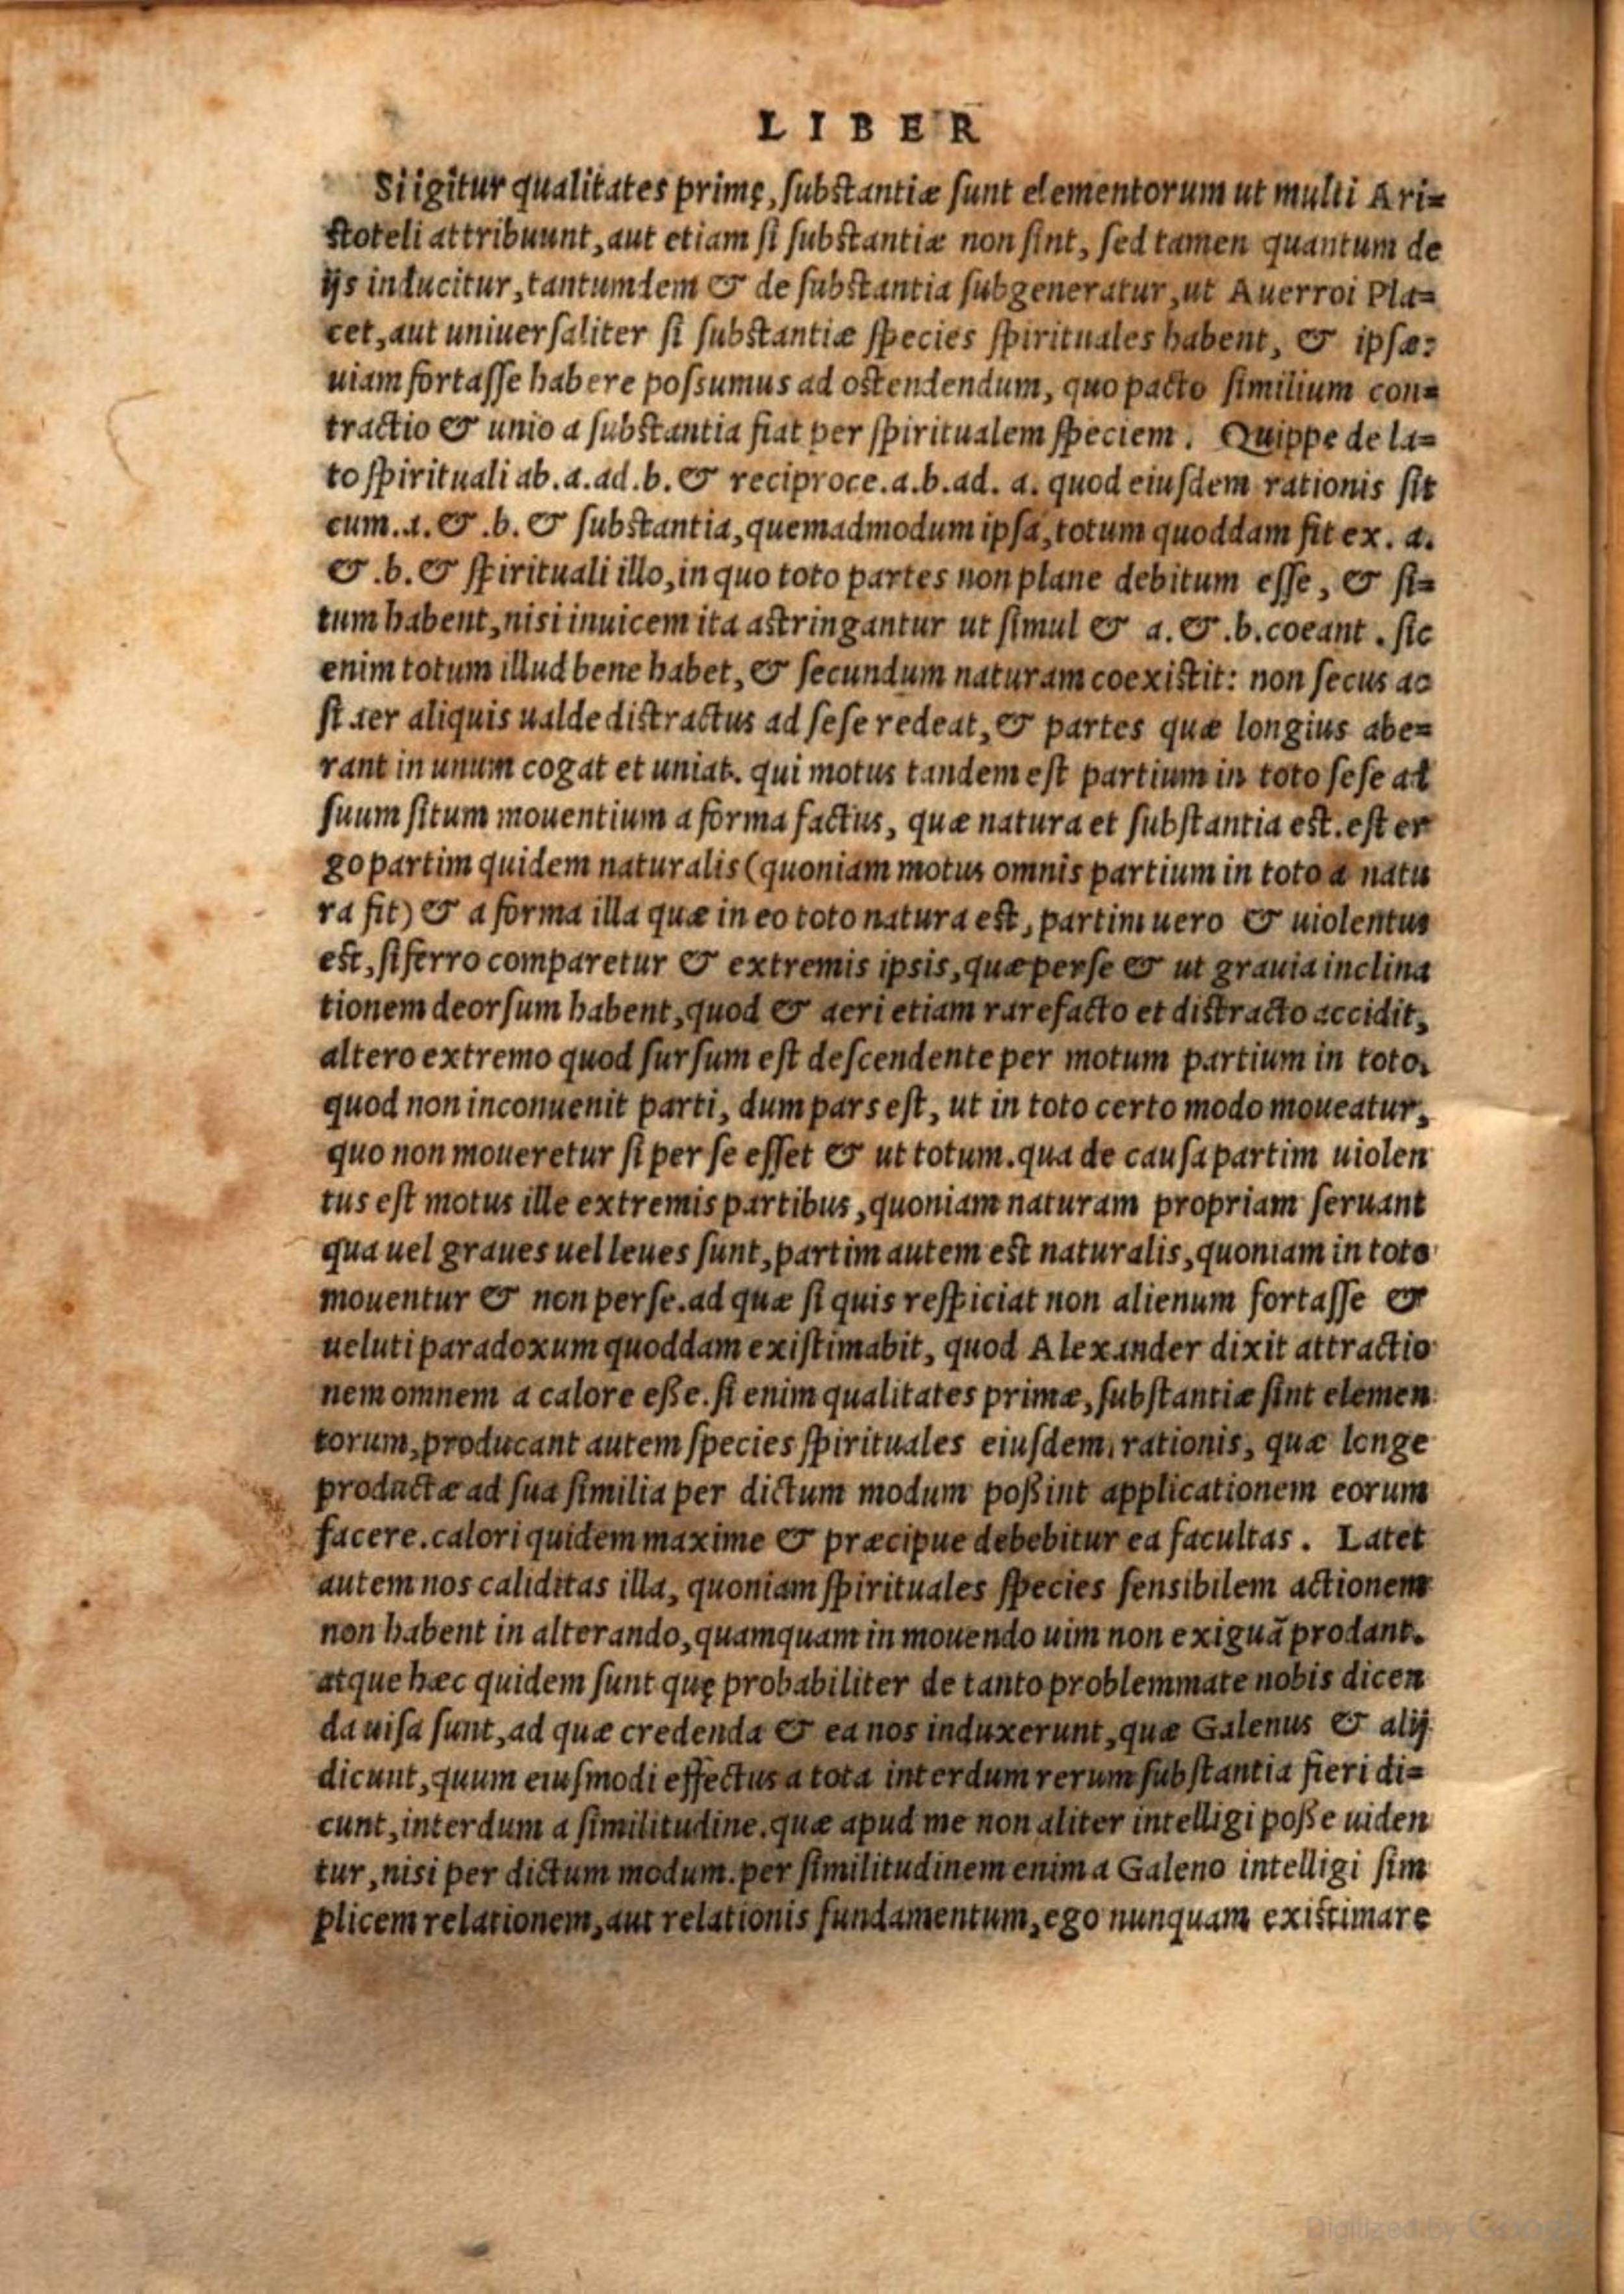 LIBER
Si igitur qualitates primę, substantiæ sunt elementorum ut multi Ari=
stoteli attribuunt, aut etiam si substantiæ non sint, sed tamen quantum de
ijs inducitur, tantumdem & de substantia subgeneratur, ut Auerroi Pla=
cet, aut uniuersaliter si substantiæ species spirituales habent, & ipsæ:
uiam fortasse habere possumus ad ostendendum, quo pacto similium con=
tractio & unio a substantia fiat per spiritualem speciem. Quippe de la=
to spirituali ab.a.ad.b.& reciproce.a.b.ad. a. quod eiusdem rationis sit
cum.a.&.b. & substantia, quemadmodum ipsa, totum quoddam fit ex. a.
&.b.& spirituali illo, in quo toto partes non plane debitum esse, & si=
tum habent, nisi inuicem ita astringantur ut simul & a.&.b.coeant. sic
enim totum illud bene habet, & secundum naturam coexistit: non secus ac
si aer aliquis ualde distractus ad sese redeat, & partes quæ longius abe=
rant in unum cogat et uniat. qui motus tandem est partium in toto sese ad
suum situm mouentium a forma factus, quæ natura et substantia est.est er
go partim quidem naturalis (quoniam motus omnis partium in toto a natu
ra fit) & a forma illa quæ in eo toto natura est, partim uero & uiolentus
est, si ferro comparetur & extremis ipsis, quæ per se & ut grauia inclina
tionem deorsum habent, quod & aeri etiam rarefacto et distracto accidit,
altero extremo quod sursum est descendente per motum partium in toto.
quod non inconuenit parti, dum pars est, ut in toto certo modo moueatur,
quo non moueretur si per se esset & ut totum.qua de causa partim uiolen
tus est motus ille extremis partibus, quoniam naturam propriam seruant
qua uel graues uel leues sunt, partim autem est naturalis, quoniam in toto
mouentur & non per se.ad quæ si quis respiciat non alienum fortasse &
ueluti paradoxum quoddam existimabit, quod Alexander dixit attractio
nem omnem a calore eße.si enim qualitates primæ, substantiæ sint elemen
torum, producant autem species spirituales eiusdem rationis, quæ longe
productæ ad sua similia per dictum modum poßint applicationem eorum
facere.calori quidem maxime & præcipue debebitur ea facultas. Latet
autem nos caliditas illa, quoniam spirituales species sensibilem actionem
non habent in alterando, quamquam in mouendo uim non exiguã prodant.
atque hæc quidem sunt quę probabiliter de tanto problemmate nobis dicen
da uisa sunt, ad quæ credenda & ea nos induxerunt, quæ Galenus & alij
dicunt, quum eiusmodi effectus a tota interdum rerum substantia fieri di=
cunt, interdum a similitudine.quæ apud me non aliter intelligi poße uiden
tur, nisi per dictum modum.per similitudinem enim a Galeno intelligi sim
plicem relationem, aut relationis fundamentum, ego nunquam existimare
Digitized by Google